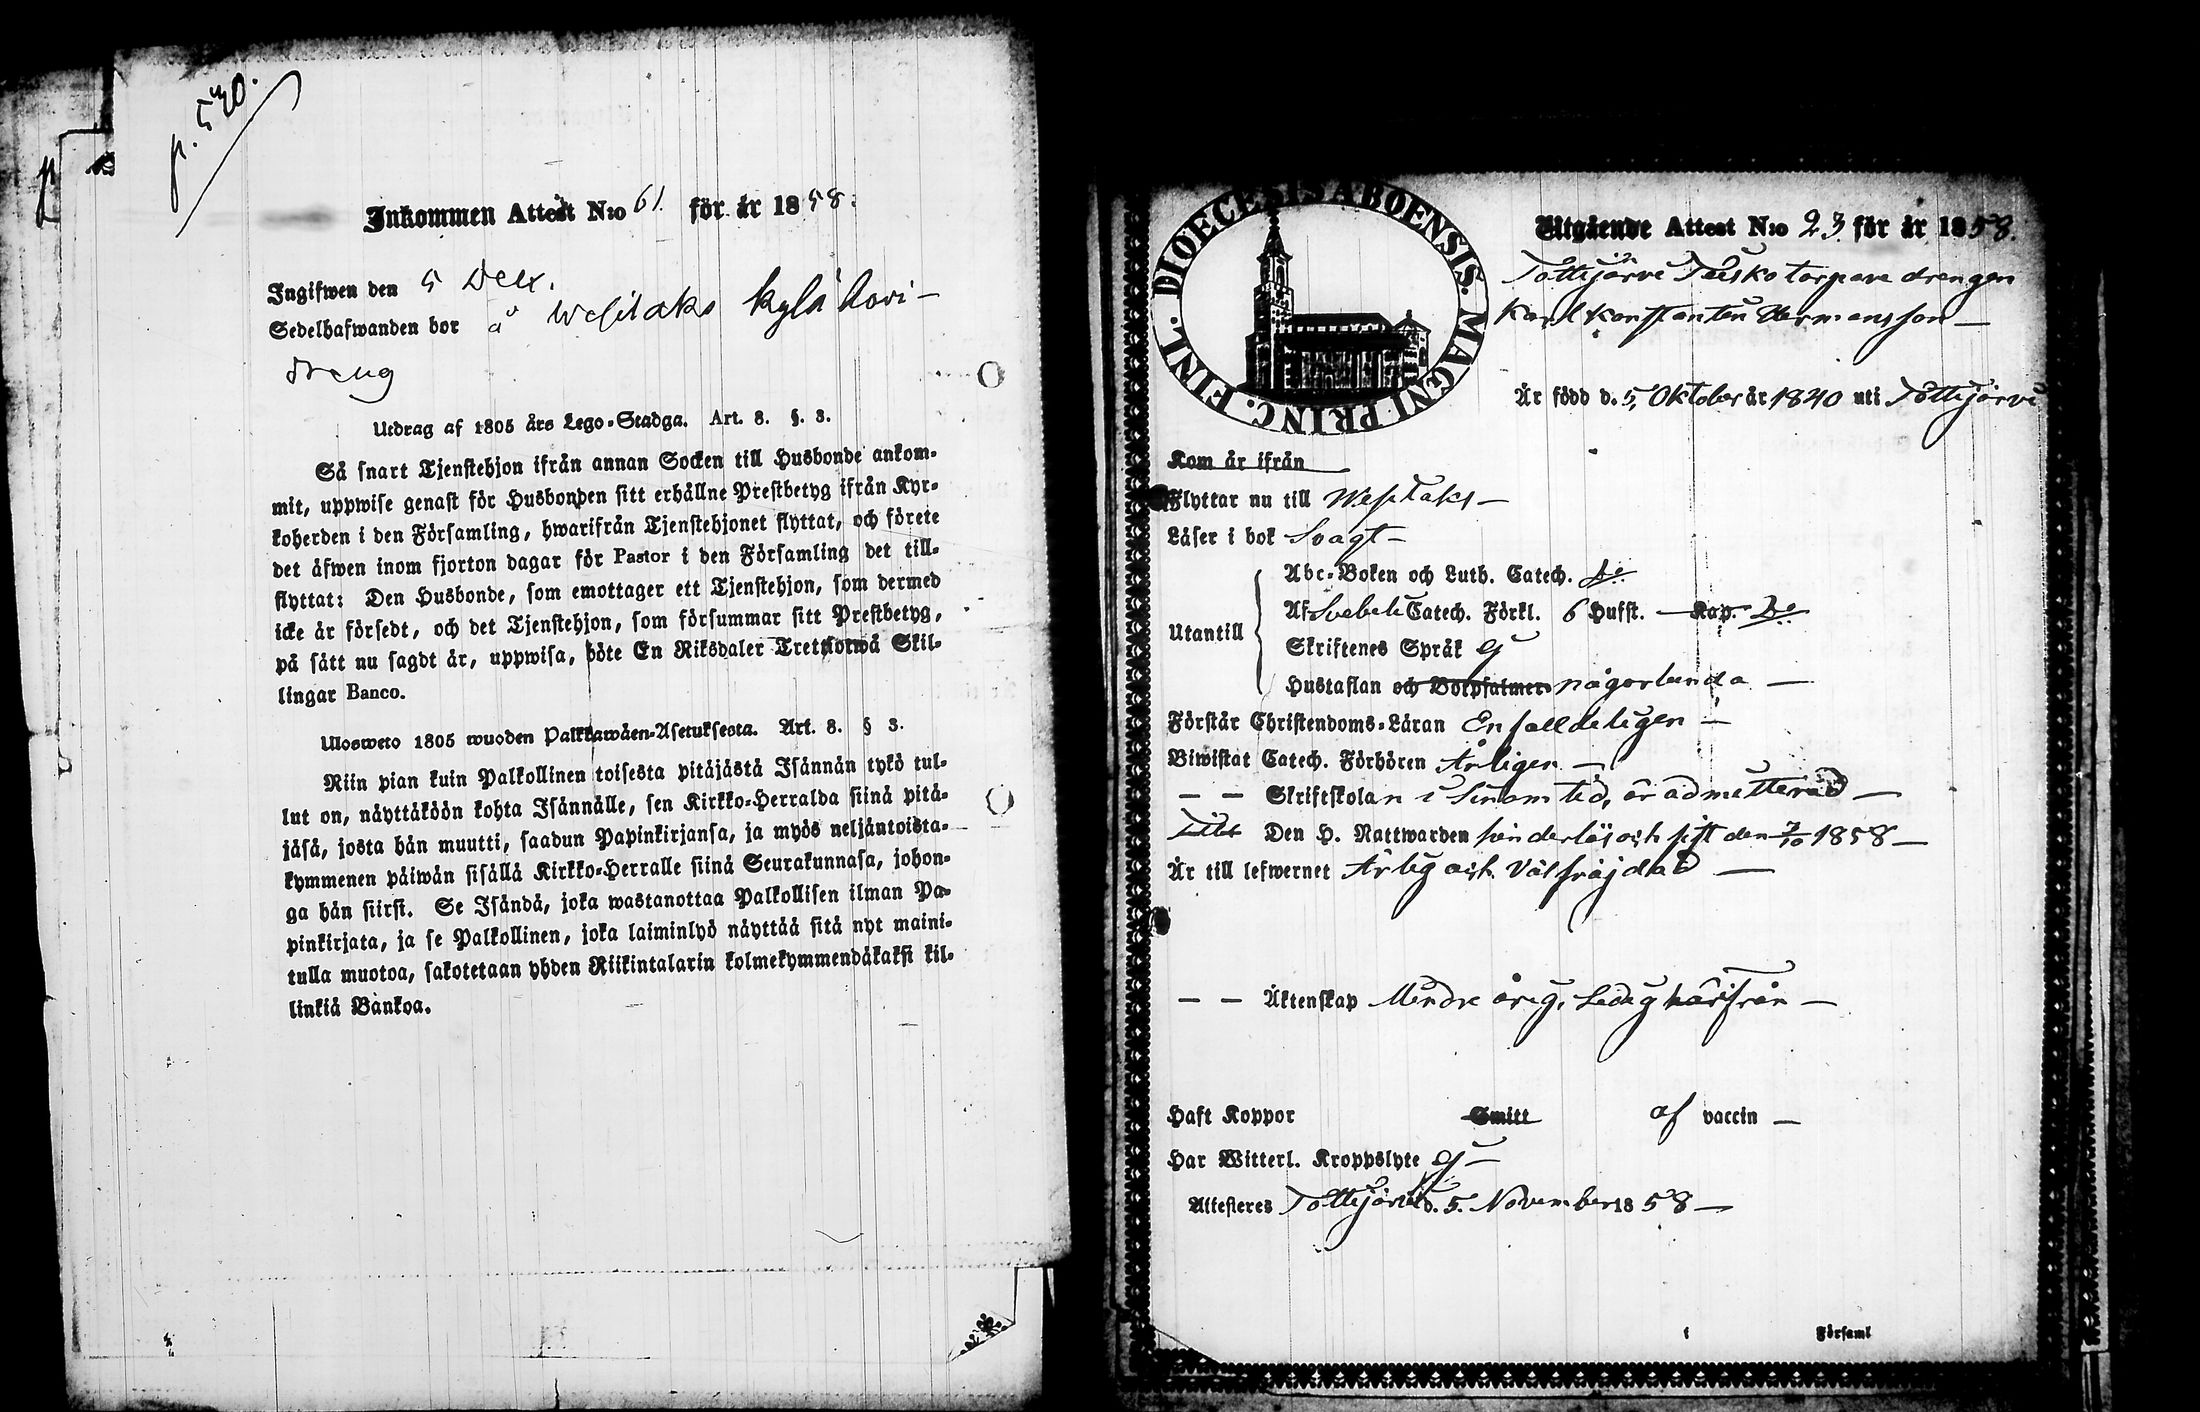 p. 530.
Inkommen Attest N:o 61 för år 1858.
Ingifwen den 5 Decr.
Sedelhafwanden bor å Wesilaks Kylä Hovi-
dreng
Utdrag af 1805 års Lego-Stadga. Art. 8. §. 3.
Så snart Tjenstehjon ifrån annan Socken till Husbonde ankom-
mit, uppwise genast för Husbonden sitt erhållne Prestbetyg ifrån Kyr-
koherden i den Församling, hwarifrån Tjenstehjonet flyttat, och förete
det äfwen inom fjorton dagar för Pastor i den Församling det till-
flyttat: Den Husbonde, som emottager ett Tjenstehjon, som dermed
icke är försedt, och det Tjenstehjon, som försummar sitt Prestbetyg,
på sätt nu sagdt är, uppwisa, böte En Riksdaler Trettiotwå Skil-
lingar Banco.
Ulosweto 1805 wuoden Palkkawäen-Asetuksesta. Art. 8. § 3.
Niin pian kuin Palkollinen toisesta pitäjästä Isännän tykö tul-
lut on, näyttäköön kohta Isännälle, sen Kirkko-Herralda siinä pitä-
jäsä, josta hän muutti, saadun Papinkirjansa, ja myös neljäntoista-
kymmenen päiwän sisällä Kirkko-Herralle siinä Seurakunnasa, johon-
ga hän siirsi. Se Isändä, joka wastanottaa Palkollisen ilman Pa-
pinkirjata, ja se Palkollinen, joka laiminlyö näyttää sitä nyt maini-
tulla muotoa, sakotetaan yhden Riikintalarin kolmekymmendäkaksi kil-
linkiä Bankoa.
DIOECESIS ABOENSIS. MAGNI PRINC. FINL.
Utgående Attest N:o 23 för år 1858.
Tottijärvi torpare drengen
Karl Konstantin Hermansson —
Är född d. 5 Oktober år 1840 uti Tottijärvi
Kom år ifrån
Flyttar nu till Wesilaks —
Läser i bok Svagt —
Utantill
Abc-Boken och Luth. Catech. do
Af Svebeli Catech. Förkl. 6 Hufst. — Kap. do
Skriftenes Språk ej
Hustaflan och Botpsalmer någorlunda —
Förstår Christendoms-Läran Enfaldeligen —
Biwistat Catech. Förhören Årligen —
— — Skriftskolan i sinom tid, är admitterad —
Den H. Nattwarden hinderlös och sist den 3/10 1858 —
Är till lefwernet Ärlig och Välfräjdad —
— — Äktenskap Mindre årig, Ledig härifrån —
Haft Koppor Smitt af vaccin —
Har Witterl. Kroppslyte ej —
Attesteres Tottijärvi d. 5. November 1858 —
i Församl